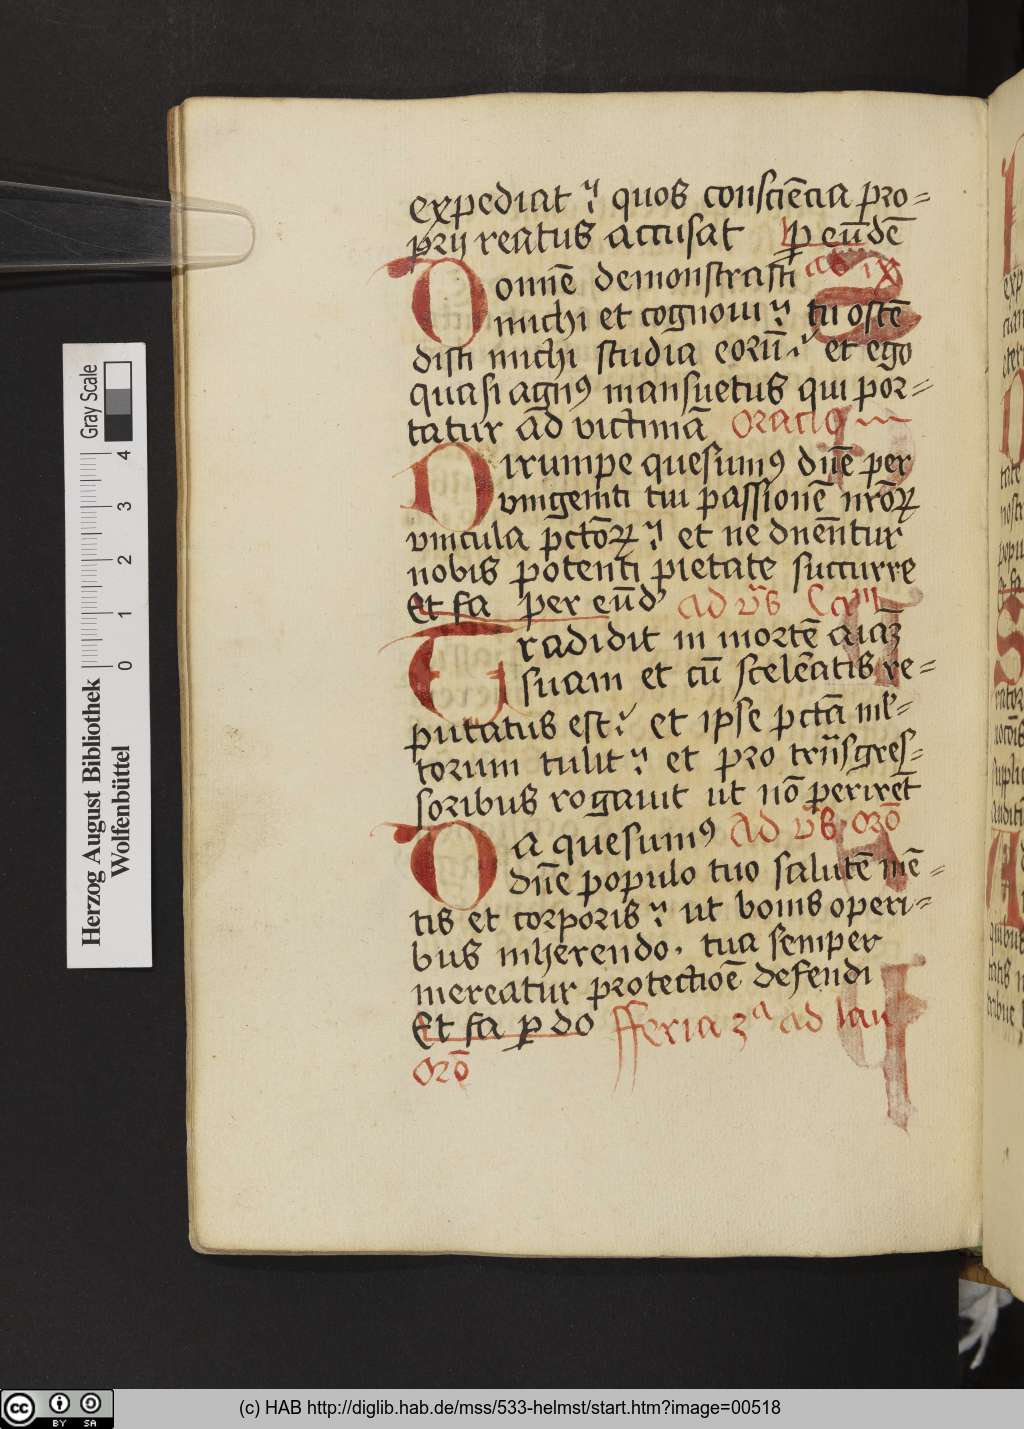 expediat quos consciēcia pro=
prij reatus accusat p eūdē
Domīe demonstrasti ad ix
michi et cognoui tu ostē
disti michi studia eorū et ego
quasi agnꝰ mansuetus qui por=
tatur ad victimā Oracio
Dirumpe quesumꝰ dn̄e per
vnigeniti tui passionē nr̄oꝝ
vincula pctōꝝ et ne dnēntur
nobis potenti pietate succurre
Et fa per eūd ad vs̄ Cap
Tradidit in mortē aīaꝫ
suam et cū scelēatis re=
putatus est et ipse pctā ml=
torum tulit et pro trn̄sgres=
soribus rogauit ut nō periret
Da quesumꝰ Ad vs̄ orō
dn̄e populo tuo salutē mē=
tis et corporis ut bonis operi=
bus inherendo. tua semper
mereatur protectioē defendi
Et fa p do fferia 3ᵃ ad lau
orō
Herzog August Bibliothek
Wolfenbüttel
Gray Scale
0 1 2 3 4
cc BY SA
(c) HAB http://diglib.hab.de/mss/533-helmst/start.htm?image=00518